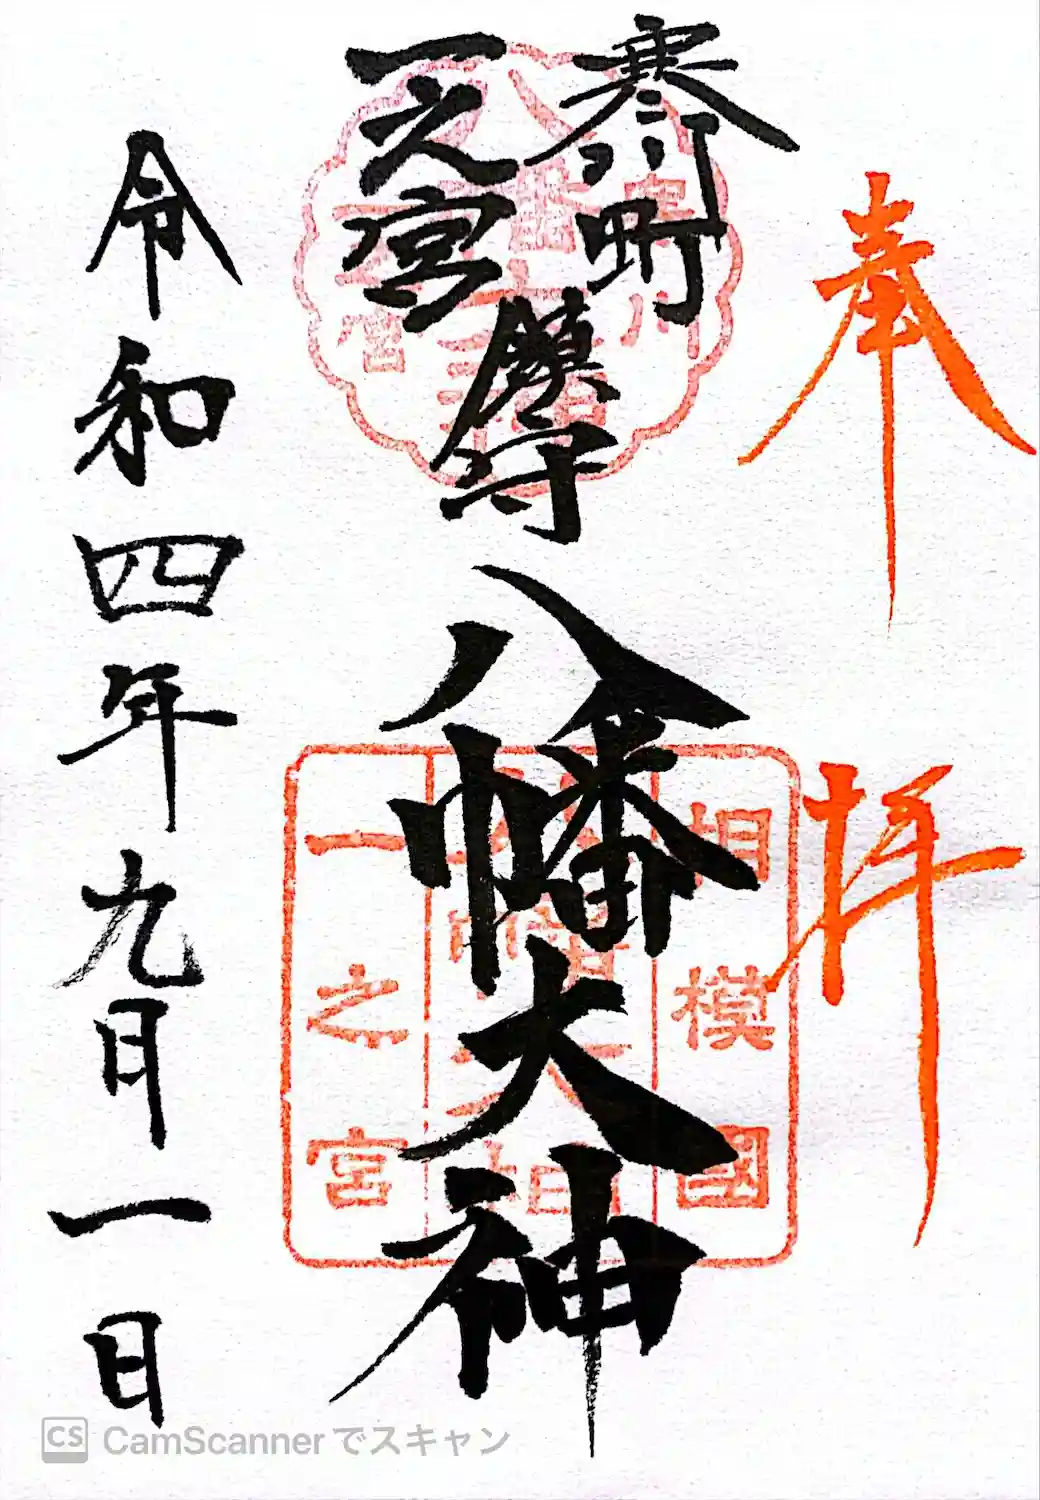 奉拝
寒川町
一之宮
鎮守
八幡大神
相模國
一之宮
令和四年九月一日
CS CamScannerでスキャン